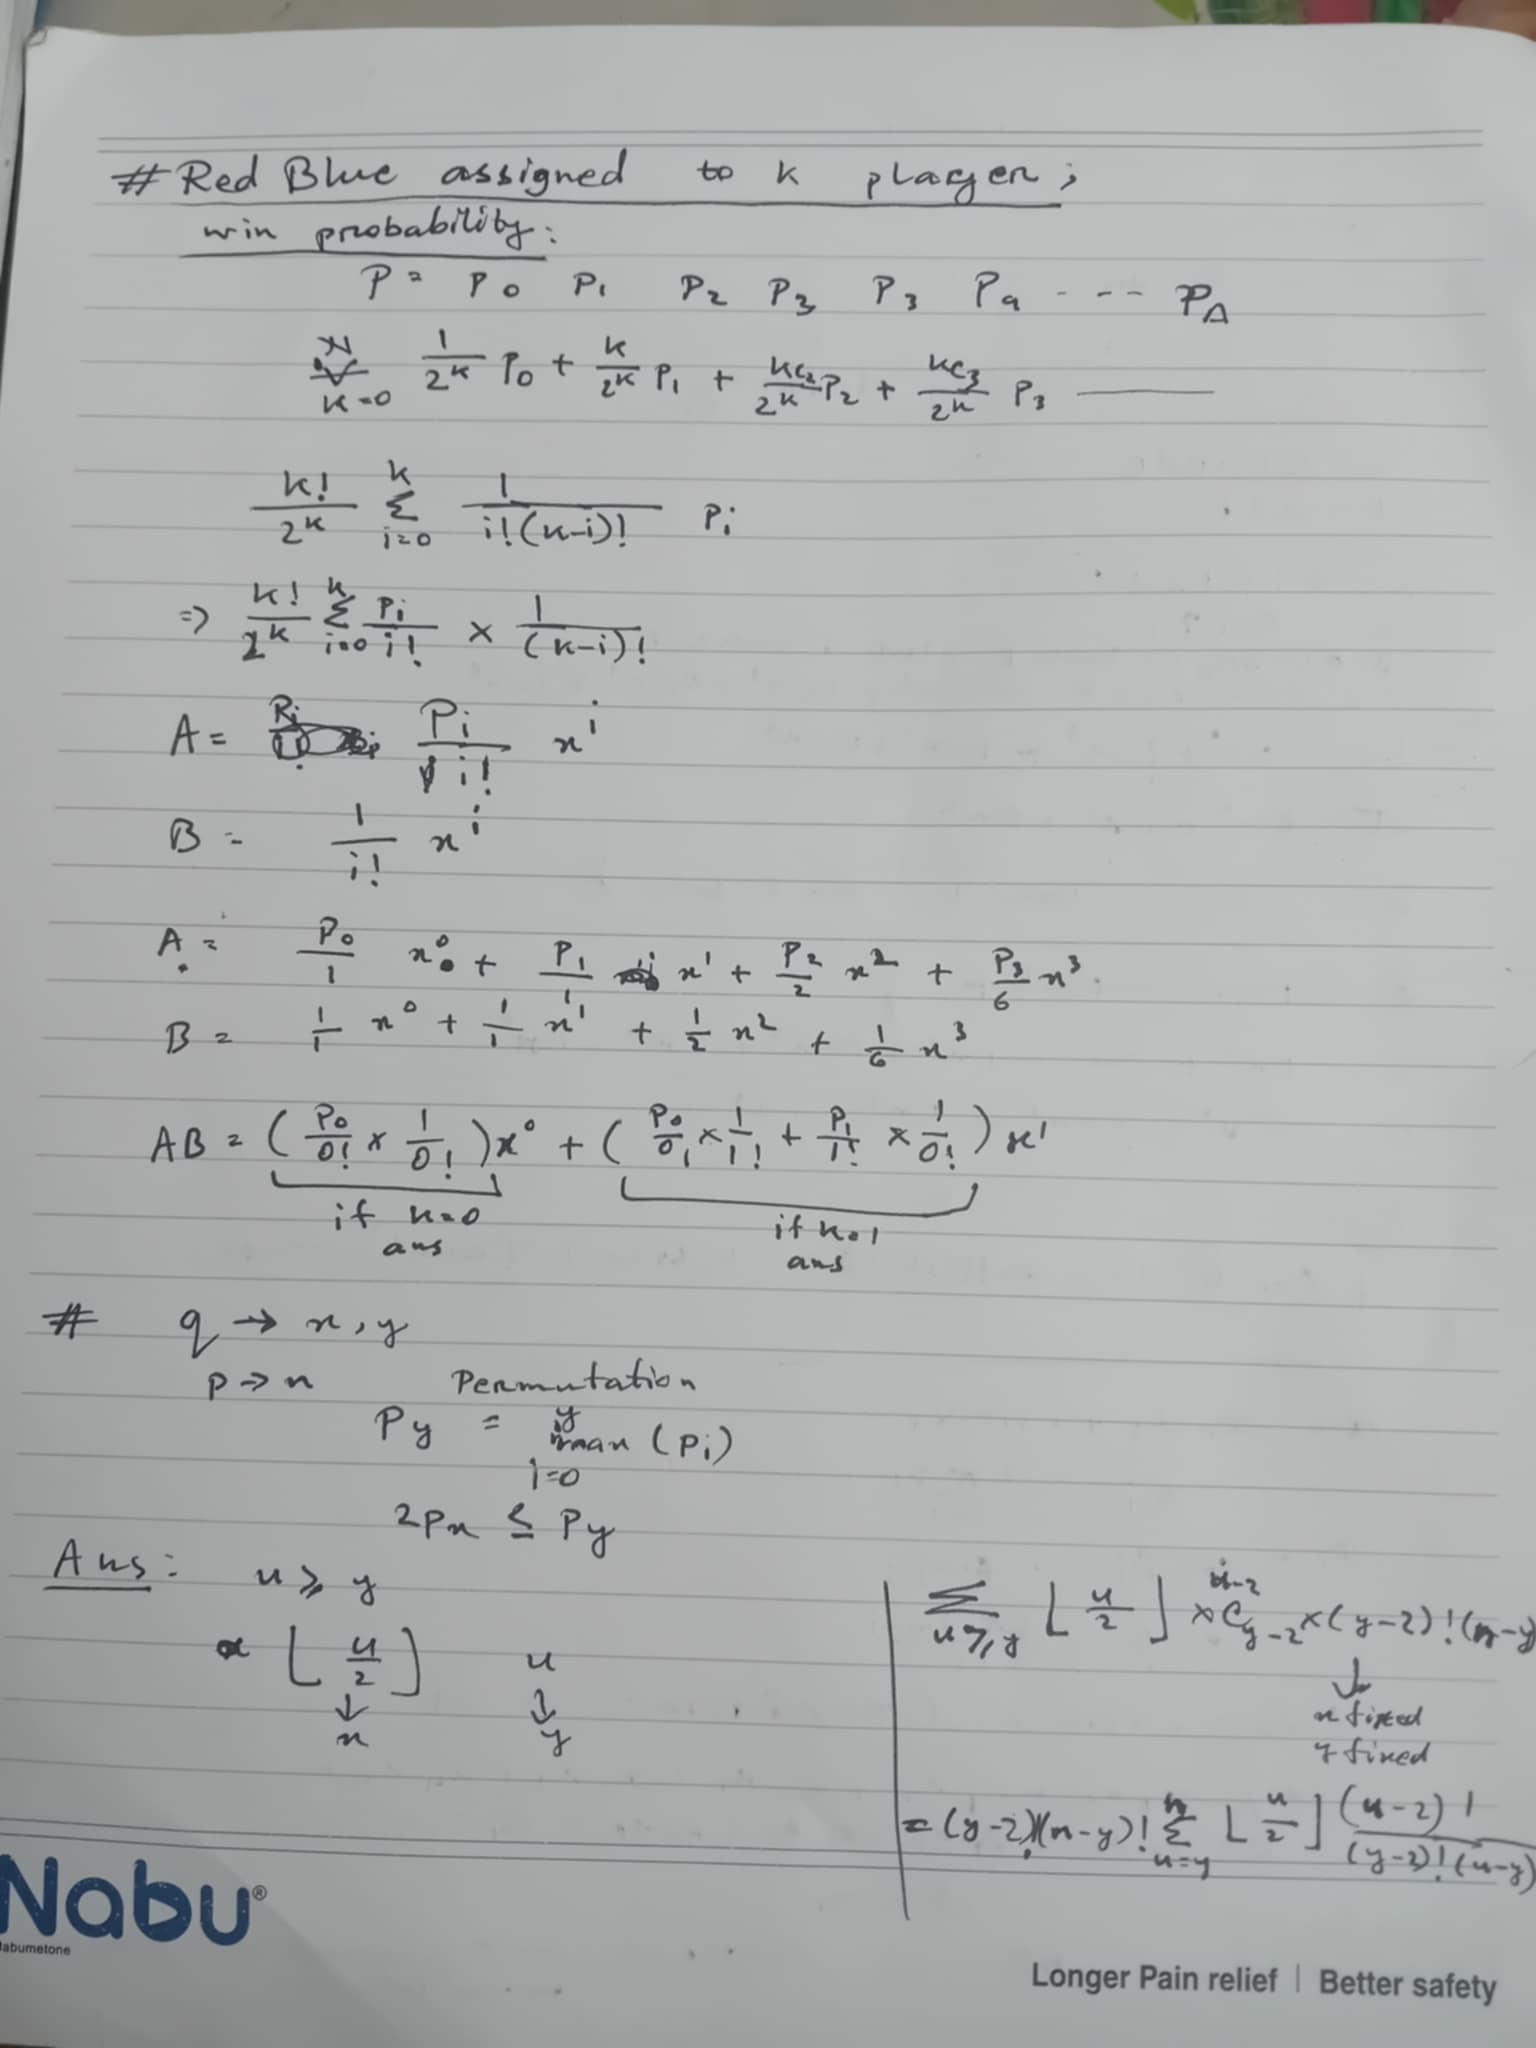 # Red Blue assigned to k player;
win probability:
P = P0 P1 P2 P3 P3 Pa - - - PA
∑ k=0 N 1/2^k P0 + k/2^k P1 + kC2/2^k P2 + kC3/2^k P3 ———
k!/2^k ∑ i=0 k 1/i!(k-i)! Pi
=> k!/2^k ∑ i=0 k Pi/i! × 1/(k-i)!
A = Pi/i! x^i
B = 1/i! x^i
A = P0/1 x^0 + P1/1 x^1 + P2/2 x^2 + P3/6 x^3
B = 1/1 x^0 + 1/1 x^1 + 1/2 x^2 + 1/6 x^3
AB = (P0/0! × 1/0!)x^0 + (P0/0! × 1/1! + P1/1! × 1/0!) x^1
if k=0
ans
if k=1
ans
# q → x, y
p → n Permutation
Py = y max i=0 (Pi)
2Px ≤ Py
Ans: u ≥ y
⌊u/2⌋ u
↓ ↓
x y
∑ u≥y ⌊u/2⌋ × u-2 C y-2 × (y-2)! (n-y)
↓
x fixed
y fixed
= (y-2)!(n-y)! ∑ u=y n ⌊u/2⌋ (u-2)!/(y-2)!(u-y)
Nabu®
Nabumetone
Longer Pain relief | Better safety